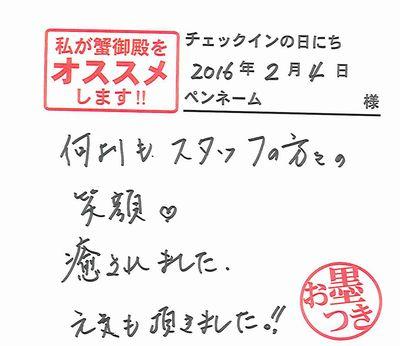 私が蟹御殿を
オススメ
します!!
チェックインの日にち
2016年2月4日
ペンネーム 様
何よりも スタッフの方々の
笑顔♡
癒されました.
元気も頂きました!!
お墨つき